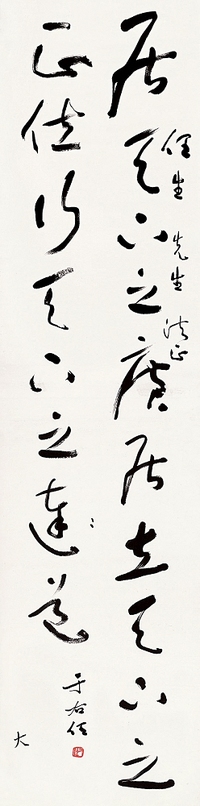 居天下之廣居立天下之
生先生法正
正位行天下之達道
于右任
大